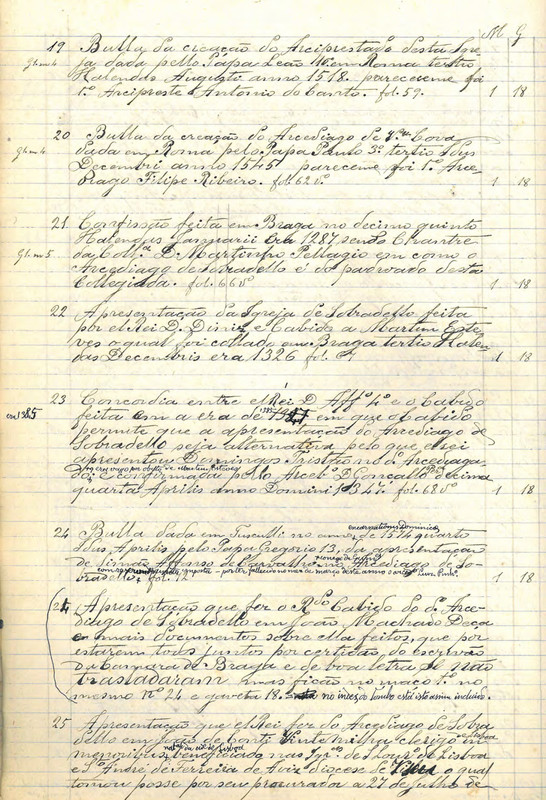 M G
19 Bulla da creação do Arciprestado desta Igre-
ja dada pello Papa Leão 10 em Roma tertio
Kalendas Augusti anno 1518. pareceme foi
1º Arcipreste Antonio do Canto. fol. 59. 1 18
20 Bulla da creação do Arcediago de
dada em Roma pelo Papa Paulo 3º tertio Idus
Decembri anno 1545 pareceme foi 1º Arce-
diago Filipe Ribeiro. fol. 62 vº 1 18
21. Confissão feita em Braga no decimo quinto
Kalendas Januarii Era 1287, sendo Chantre
da Collª D. Martinho Pellagio em como o
Arcediago de Sobradello é do padroado desta
Collegiada. fol. 66 vº 1 18
22 Apresentação da Igreja de Sobradello feita
por el Rei D. Diniz e Cabido a Martim Este-
ves o qual foi collado em Braga tertio Kalen-
das Decembris era 1326 fol. 1 18
23 Concordia entre el Rei D. Affº 4º e o Cabido
em 1385 feita em a era de 1385 em que o Cabido
permite que a apresentação do Arcediago de
Sobradello seja alternativa pelo que el rei
apresentou Domingos Tristão no dº Arcediaga-
do, q era vago por obito de Martim Esteves
e confirmada pello Arcebº D. Gonçallo Prª decima
quarta Aprilis anno Domini 1347. fol. 68 vº 1 18
24 Bulla dada em Tusculli no anno, de 1574 quarto
Idus, Aprilis pelo Papa Gregorio 13, da apresentação
de Simão Affonso de Carvalho no Arcediago de So-
bradello, fol. 72 1 18
24 Apresentação que fez o Rdo Cabido do dº Arce-
diago de Sobradello em João Machado Deça
e mais documentos sobre ella feitos, que por
estarem todos juntos por certidão do escrivão
da Camara de Braga e de boa letra se não
trasladaram mas ficão no maço 1º no
mesmo nº 24 e gaveta 18. no tombo está assim incluido.
25 Apresentação que el Rei fez do Arcediago de Sobra-
dello em
menoribus, natal da cid. de Lisboa beneficiado nas Igrªs de Lisboa
e Sº André de Ferreira de Aviz diocese de o qual
tomou posse por seu procurador a 21 de julho de